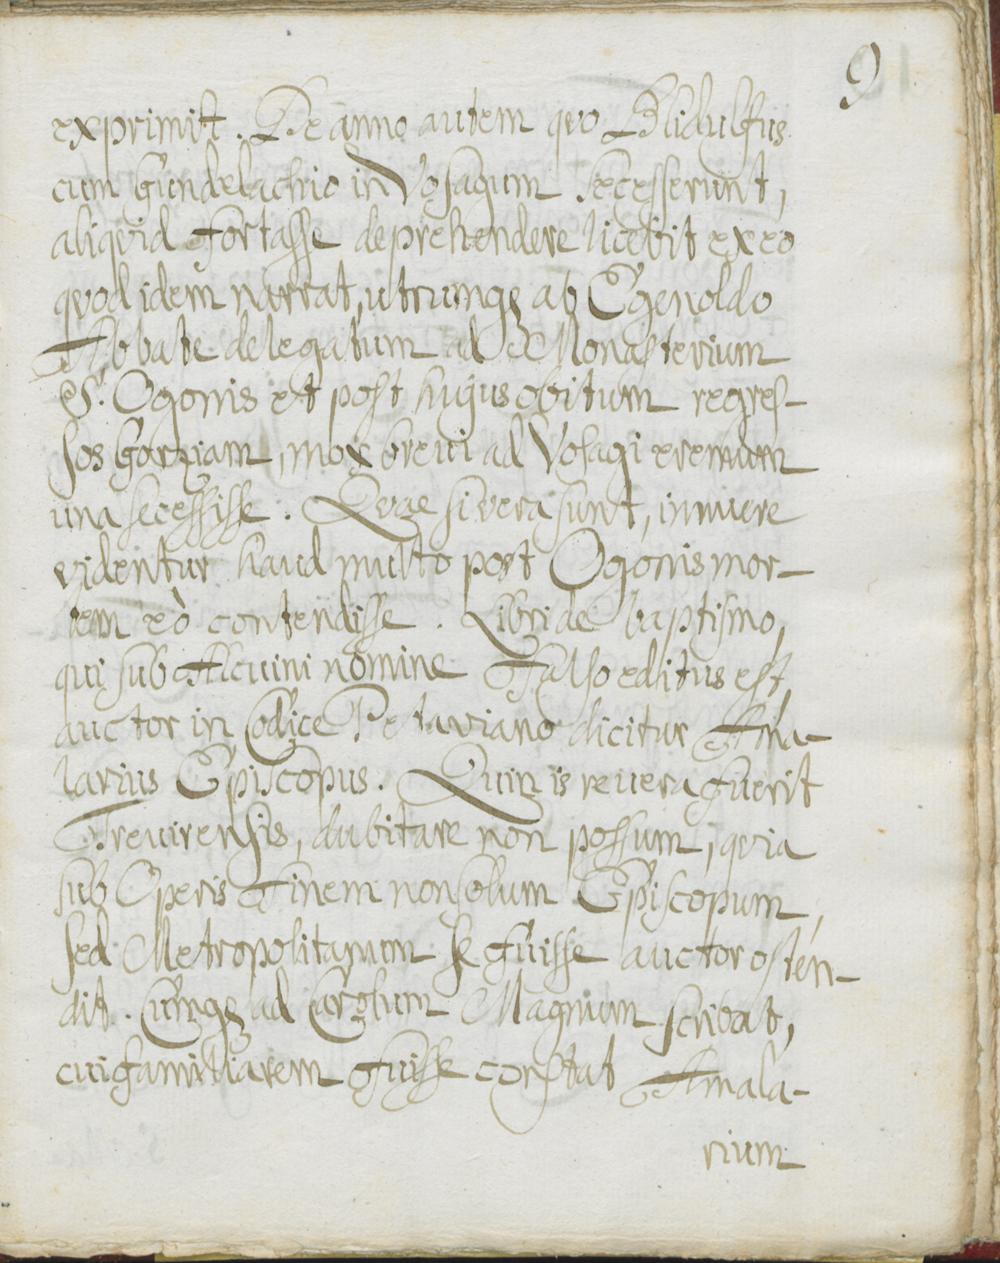 9
exprimit. De anno autem quo Blidulfus
cum Gundelachrio in Vosagum secesserunt,
aliquid fortasse deprehendere licebit ex eo
quod idem narrat, utrumq; ab Egenoldo
Abbate delegatum ad Monasterium
S. Ogonis et post hujus obitum regres-
sos Gorziam, mox brevi ad Vosagi eremum
una secessisse. Quae si vera sunt, innuere
videntur haud multo post Ogonis mor-
tem eò contendisse. Libri de baptismo,
qui sub Alcuini nomine falso editus est,
auctor in Codice Petaviano dicitur Ama-
larius Episcopus. Quin is revera fuerit
Trevirensis, dubitare non possum, quia
sub Operis finem non solum Episcopum,
sed Metropolitanum se fuisse auctor osten-
dit. Cumq; ad Carolum Magnum scribat,
cui familiarem fuisse constat Amala-
rium